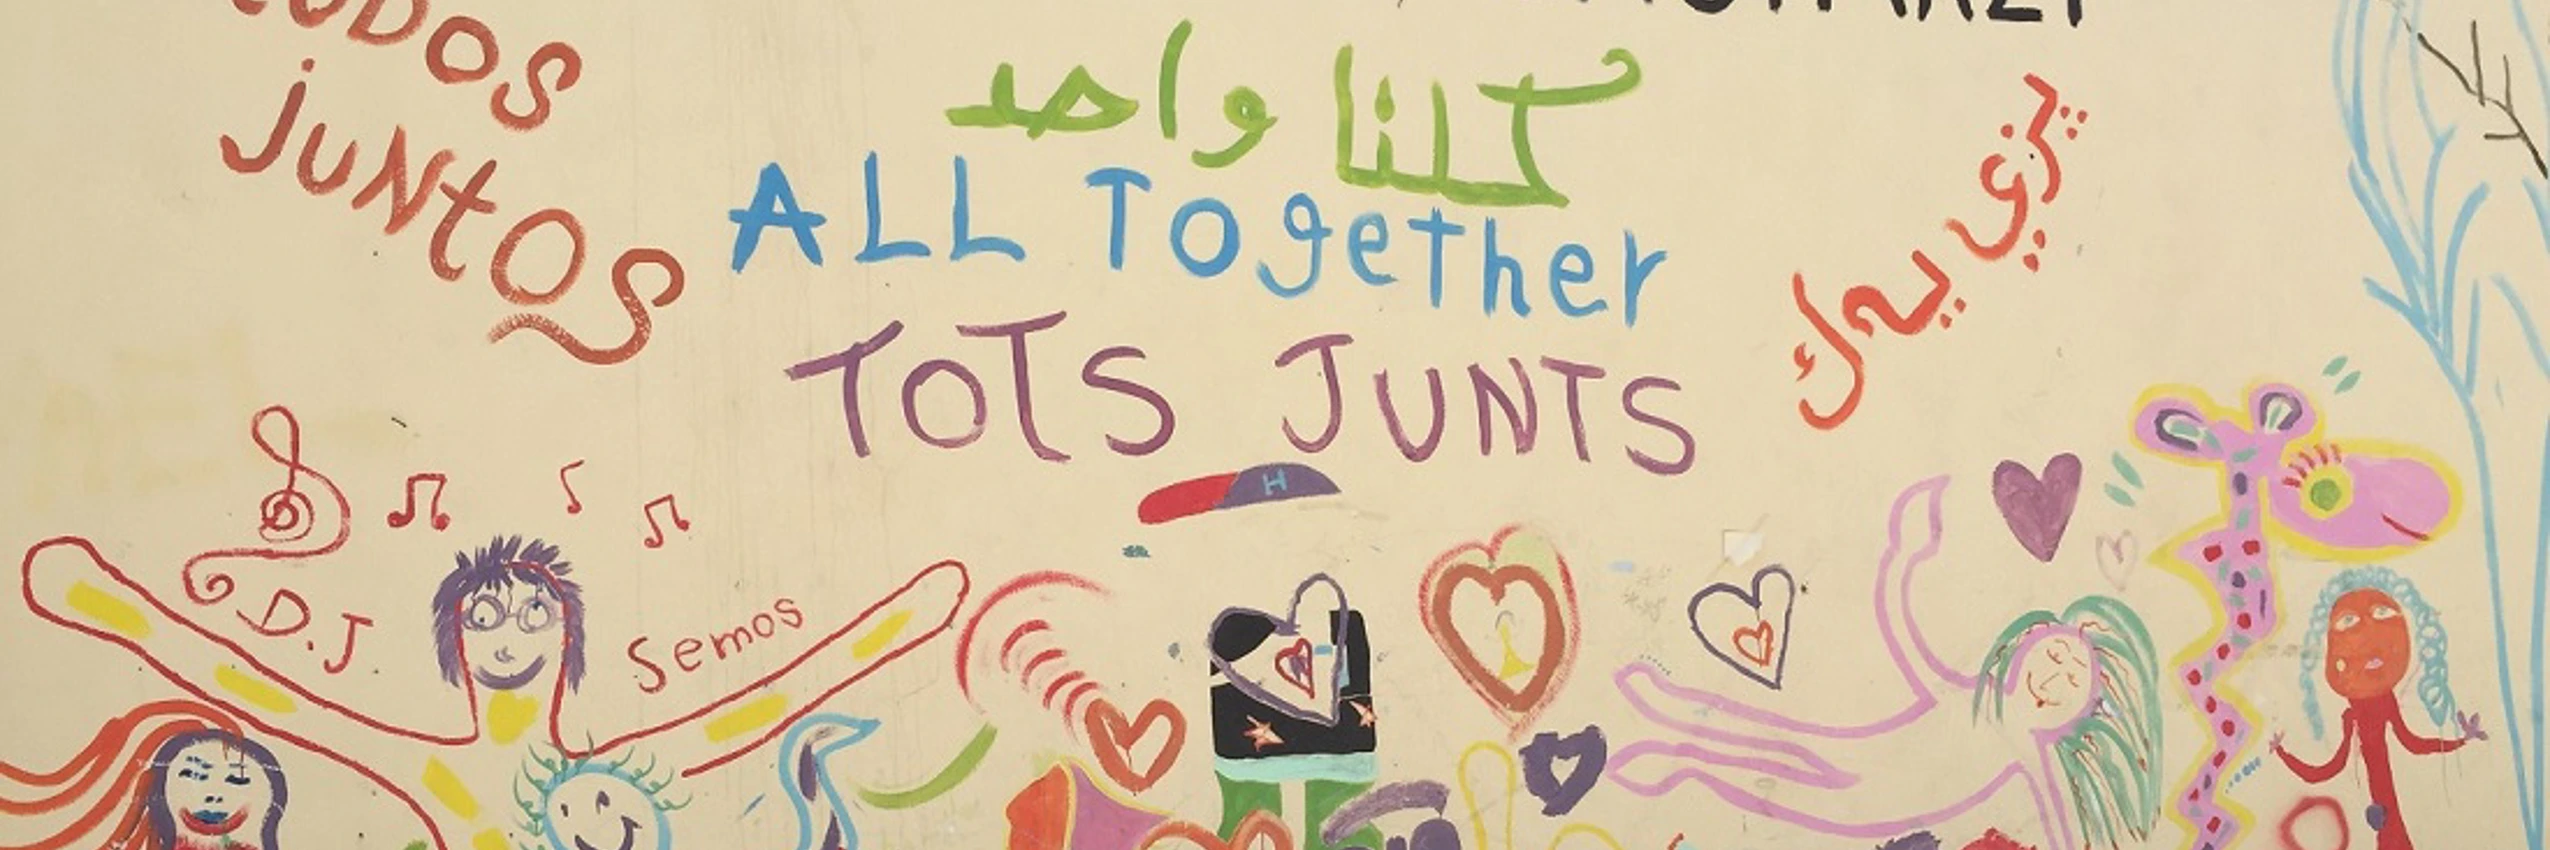 TODOS
juntos
كلنا واحد
ALL Together
TOTS JUNTS
H
D.J
Semos